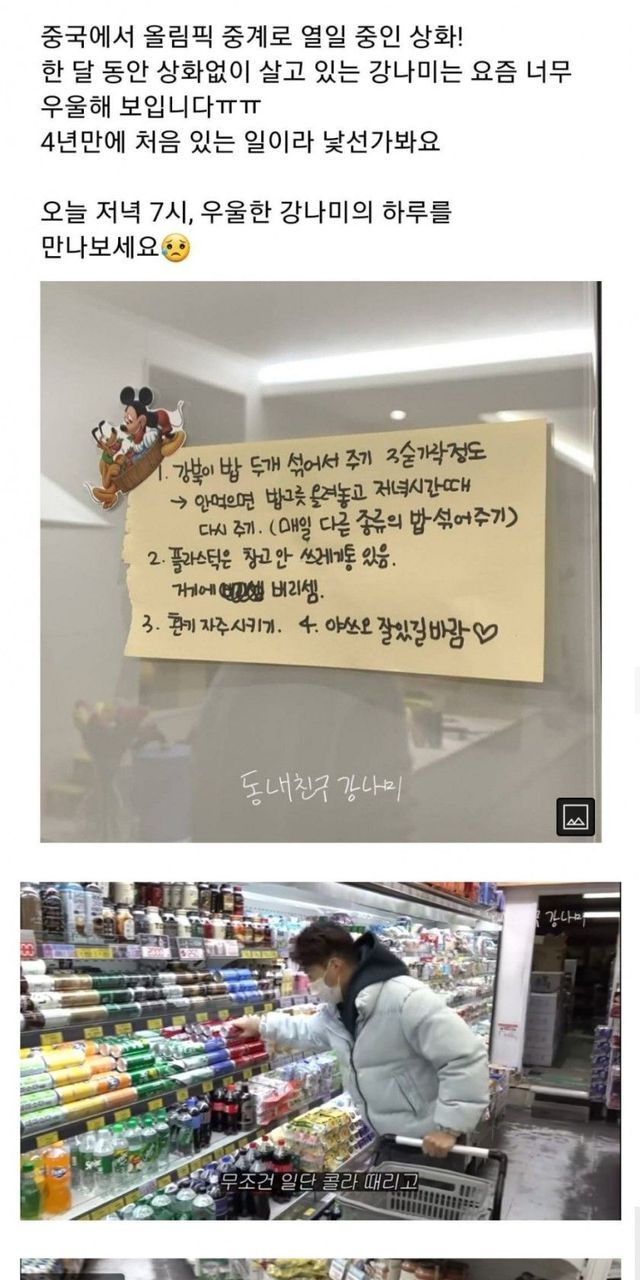 중국에서 올림픽 중계로 열일 중인 상화!
한 달 동안 상화없이 살고 있는 강나미는 요즘 너무
우울해 보입니다ㅠㅠ
4년만에 처음 있는 일이라 낯선가봐요
오늘 저녁 7시, 우울한 강나미의 하루를
만나보세요😥
1. 강북이 밥 두개 섞어서 주기 3숟가락정도
→ 안먹으면 밥그릇 올려놓고 저녁시간때
다시 주기. (매일 다른 종류의 밥 섞어주기)
2. 플라스틱은 창고 안 쓰레기통 있음.
거기에 버리셈.
3. 환키 자주 시키기. 4. 야쓰오 잘있길바람♡
동내친구 강나미
강나미
무조건 일단 콜라 때리고